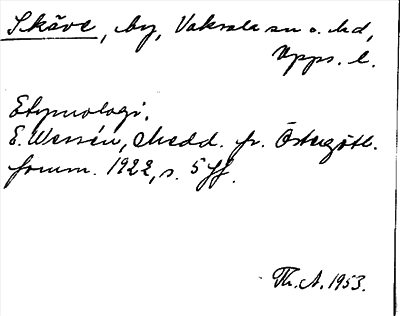 Skäve, by, Vaksala sn o. hd,
Upps. l.
Etymologi.
E. Wessén, Medd. fr. Östergötl.
fornm. 1922, s. 5 ff.
Th. A. 1953.